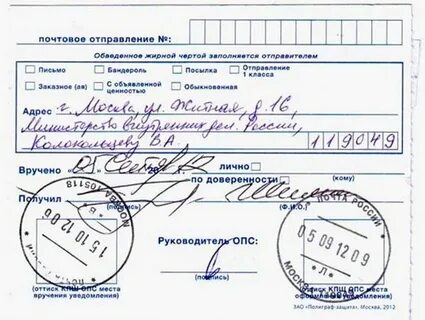 почтовое отправление №:
Обведенное жирной чертой заполняется отправителем
Письмо Бандероль Посылка Отправление 1 класса
Заказное (ая) С объявленной ценностью Обыкновенная
Адрес г. Москва, ул. Житная, д. 16,
Министерство внутренних дел России,
Колокольцеву В.А. 119049
Вручено «05» 20 лично
по доверенности (кому)
Получил (подпись) (Ф.И.О.)
МОСКВА 105118
15 10 12 06
«В»
ПОЧТА РОССИИ
05 09 12 09
«Л»
МОСКВА
Руководитель ОПС:
(подпись)
(оттиск КПШ ОПС места вручения уведомления)
(оттиск КПШ ОПС места оформления уведомления)
ЗАО «Полиграф-защита», Москва, 2012